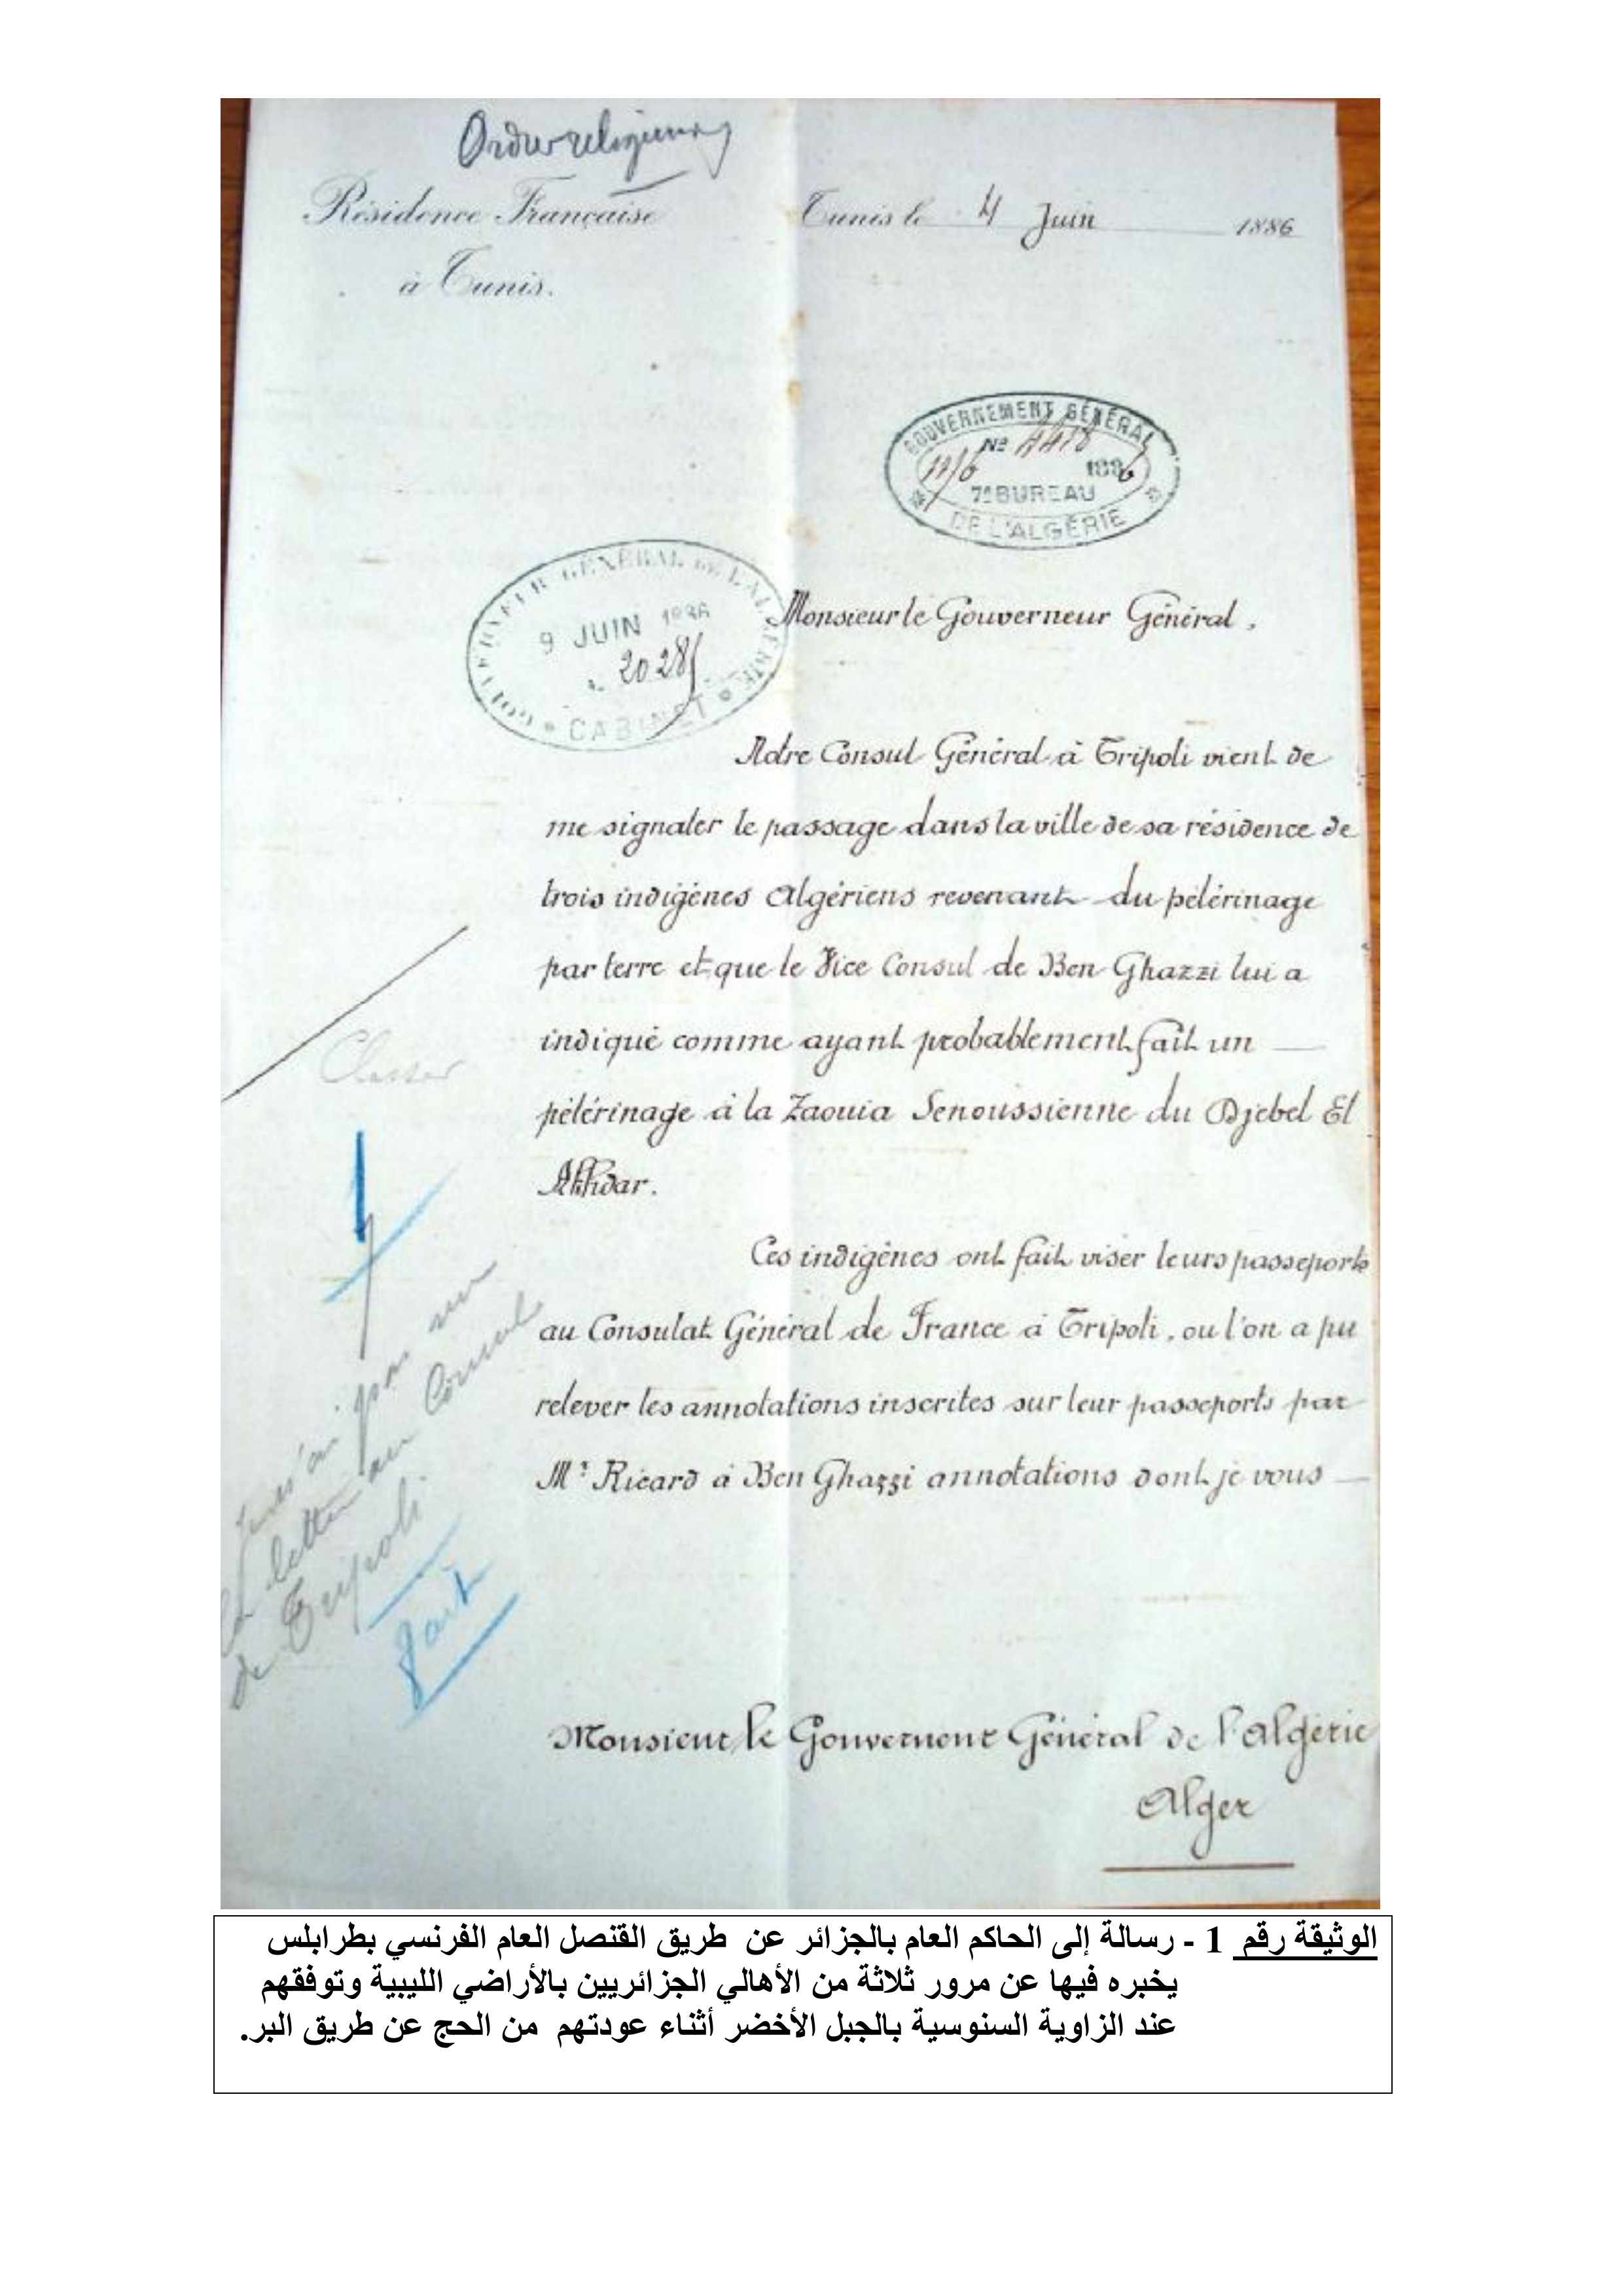 Ordres religieux
Résidence Française
à Tunis.
Tunis le 4 Juin 1886
GOUVERNEMENT GÉNÉRAL
No 4418
11/6 1886
7e BUREAU
DE L'ALGÉRIE
GOUVERNEUR GÉNÉRAL DE L'ALGÉRIE
9 JUIN 1886
2028
CABINET
Monsieur le Gouverneur Général,
Notre Consul Général à Tripoli vient de
me signaler le passage dans la ville de sa résidence de
trois indigènes Algériens revenant du pélérinage
par terre et que le Vice Consul de Ben Ghazzi lui a
indiqué comme ayant probablement fait un
pélérinage à la Zaouia Senoussienne du Djebel El
Akhdar.
Ces indigènes ont fait viser leurs passeports
au Consulat Général de France à Tripoli, ou l'on a pu
relever les annotations inscrites sur leur passeports par
Mr Ricard à Ben Ghazzi annotations dont je vous
Classer
pas vu
la lettre au Consul
de Tripoli
fait
Monsieur le Gouverneur Général de l'Algérie
Alger
الوثيقة رقم 1 - رسالة إلى الحاكم العام بالجزائر عن طريق القنصل العام الفرنسي بطرابلس
يخبره فيها عن مرور ثلاثة من الأهالي الجزائريين بالأراضي الليبية وتوفقهم
عند الزاوية السنوسية بالجبل الأخضر أثناء عودتهم من الحج عن طريق البر.